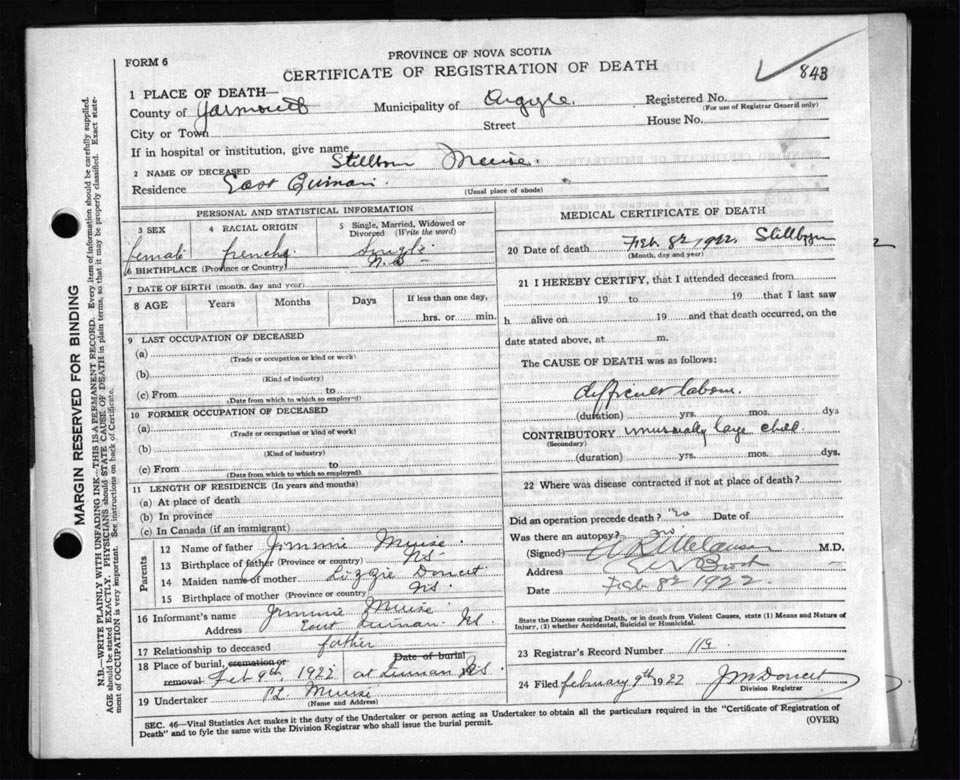 FORM 6
PROVINCE OF NOVA SCOTIA
CERTIFICATE OF REGISTRATION OF DEATH
843
1 PLACE OF DEATH—
County of Yarmouth Municipality of Argyle. Registered No.
(For use of Registrar General only)
City or Town Street House No.
If in hospital or institution, give name
2 NAME OF DECEASED Stillborn Meuse.
Residence East Quinan.
(Usual place of abode)
PERSONAL AND STATISTICAL INFORMATION
3 SEX 4 RACIAL ORIGIN 5 Single, Married, Widowed or Divorced (Write the word)
female french single
6 BIRTHPLACE (Province or Country) N.S
7 DATE OF BIRTH (month, day and year)
8 AGE Years Months Days If less than one day,
hrs. or min.
9 LAST OCCUPATION OF DECEASED
(a)
(Trade or occupation or kind or work)
(b)
(Kind of industry)
(c) From to
(Date from which to which so employed)
10 FORMER OCCUPATION OF DECEASED
(a)
(Trade or occupation or kind of work)
(b)
(Kind of industry)
(c) From to
(Date from which to which so employed)
11 LENGTH OF RESIDENCE (In years and months)
(a) At place of death
(b) In province
(c) In Canada (if an immigrant)
Parents
12 Name of father Jimmie Muise.
13 Birthplace of father (Province or country) NS.
14 Maiden name of mother Lizzie Doucet
15 Birthplace of mother (Province or country) NS.
16 Informant's name Jimmie Muise
Address East Quinan. NS.
17 Relationship to deceased father
18 Place of burial, cremation or removal Date of burial
Feb 9th, 1922 at Quinan NS.
19 Undertaker Muise
(Name and Address)
MEDICAL CERTIFICATE OF DEATH
20 Date of death Feb. 8th 1922. Stillborn
(Month, day and year)
21 I HEREBY CERTIFY, that I attended deceased from
19 to 19 that I last saw
h alive on 19 and that death occurred, on the
date stated above, at m.
The CAUSE OF DEATH was as follows:
difficult labour.
(duration) yrs. mos. dys
CONTRIBUTORY unusually large child.
(Secondary)
(duration) yrs. mos. dys.
22 Where was disease contracted if not at place of death?
Did an operation precede death? no Date of
Was there an autopsy? no
(Signed) M.D.
Address
Date Feb 8th 1922.
State the Disease causing Death, or in death from Violent Causes, state (1) Means and Nature of Injury, (2) whether Accidental, Suicidal or Homicidal.
23 Registrar's Record Number
24 Filed february 9th 1922 J M Doucet
Division Registrar
SEC. 46—Vital Statistics Act makes it the duty of the Undertaker or person acting as Undertaker to obtain all the particulars required in the "Certificate of Registration of
Death" and to fyle the same with the Division Registrar who shall issue the burial permit.
(OVER)
MARGIN RESERVED FOR BINDING
N.B.—WRITE PLAINLY WITH UNFADING INK.—THIS IS A PERMANENT RECORD. Every item of information should be carefully supplied.
AGE should be stated EXACTLY. PHYSICIANS should STATE CAUSE OF DEATH in plain terms, so that it may be properly classified. Exact statement of OCCUPATION is very important. See instructions on back of Certificate.